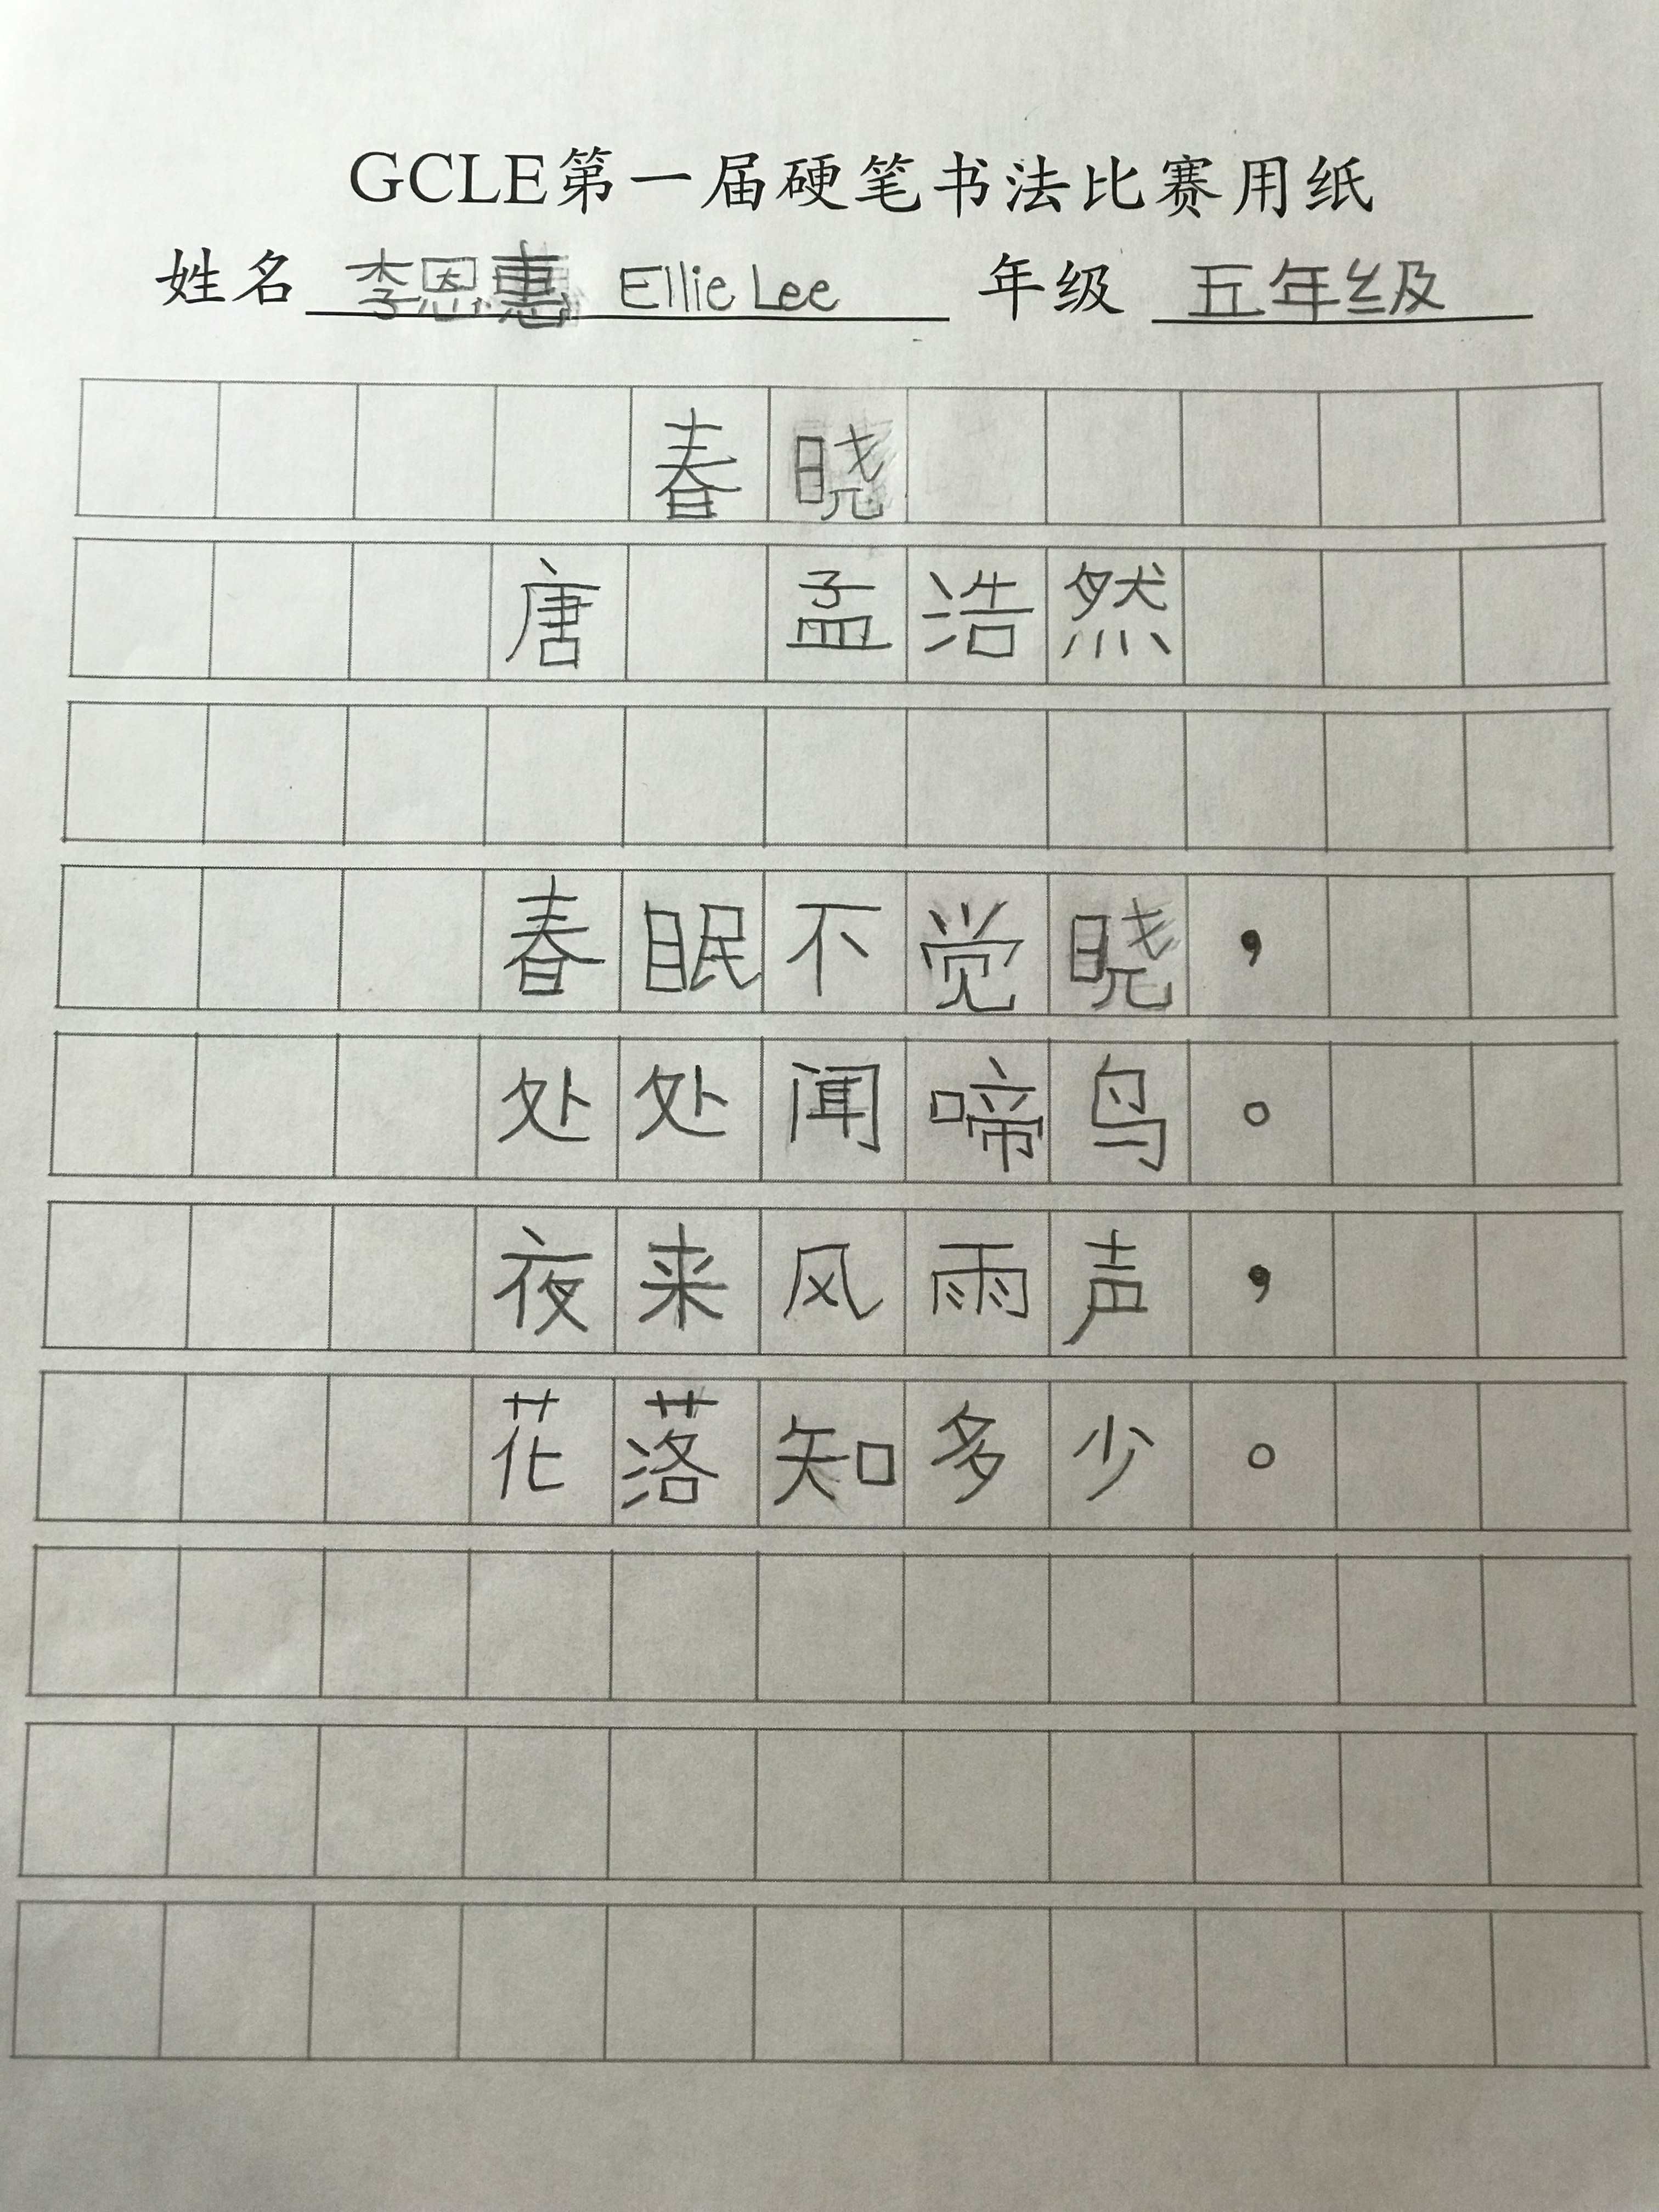 GCLE第一届硬笔书法比赛用纸
姓名 李恩惠 Ellie Lee 年级 五年级
春晓
唐 孟浩然
春眠不觉晓，
处处闻啼鸟。
夜来风雨声，
花落知多少。